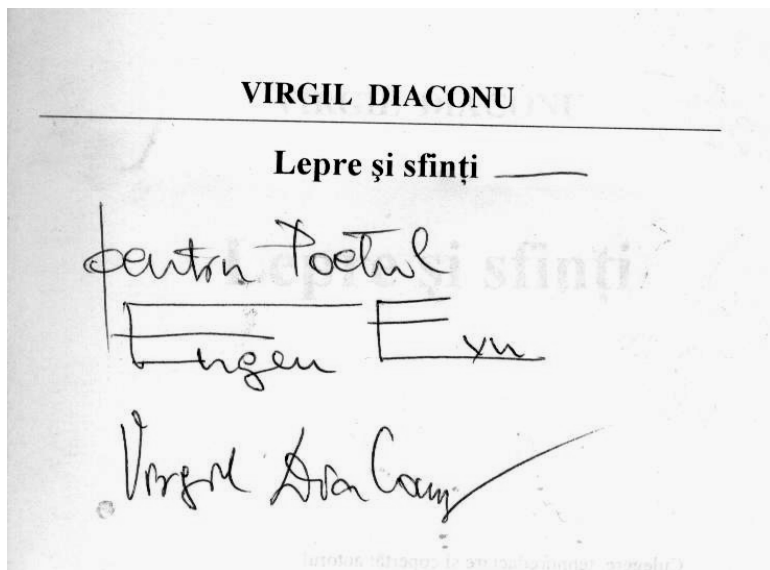 VIRGIL DIACONU
Lepre şi sfinţi
pentru Poetul
Eugen Evu
Virgil Diaconu